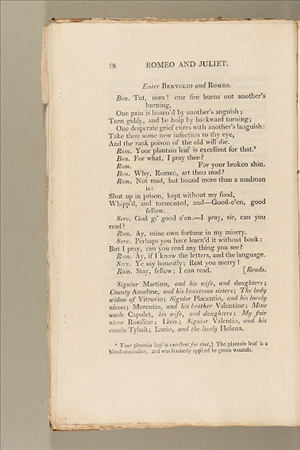 18 ROMEO AND JULIET.
Enter BENVOLIO and ROMEO.
Ben. Tut, man! one fire burns out another's
burning,
One pain is lessen'd by another's anguish;
Turn giddy, and be holp by backward turning;
One desperate grief cures with another's languish:
Take thou some new infection to thy eye,
And the rank poison of the old will die.
Rom. Your plantain leaf is excellent for that.*
Ben. For what, I pray thee?
Rom. For your broken shin.
Ben. Why, Romeo, art thou mad?
Rom. Not mad, but bound more than a madman
is:
Shut up in prison, kept without my food,
Whipp'd, and tormented, and—Good-e'en, good
fellow.
Serv. God gi' good e'en.—I pray, sir, can you
read?
Rom. Ay, mine own fortune in my misery.
Serv. Perhaps you have learn'd it without book:
But I pray, can you read any thing you see?
Rom. Ay, if I know the letters, and the language.
Serv. Ye say honestly; Rest you merry!
Rom. Stay, fellow; I can read. [Reads.
Signior Martino, and his wife, and daughters;
County Anselme, and his beauteous sisters; The lady
widow of Vitruvio; Signior Placentio, and his lovely
nieces; Mercutio, and his brother Valentine; Mine
uncle Capulet, his wife, and daughters; My fair
niece Rosaline; Livia; Signior Valentio, and his
cousin Tybalt; Lucio, and the lively Helena.
* Your plantain leaf is excellent for that,] The plantain leaf is a
blood-stancher, and was formerly applied to green wounds.